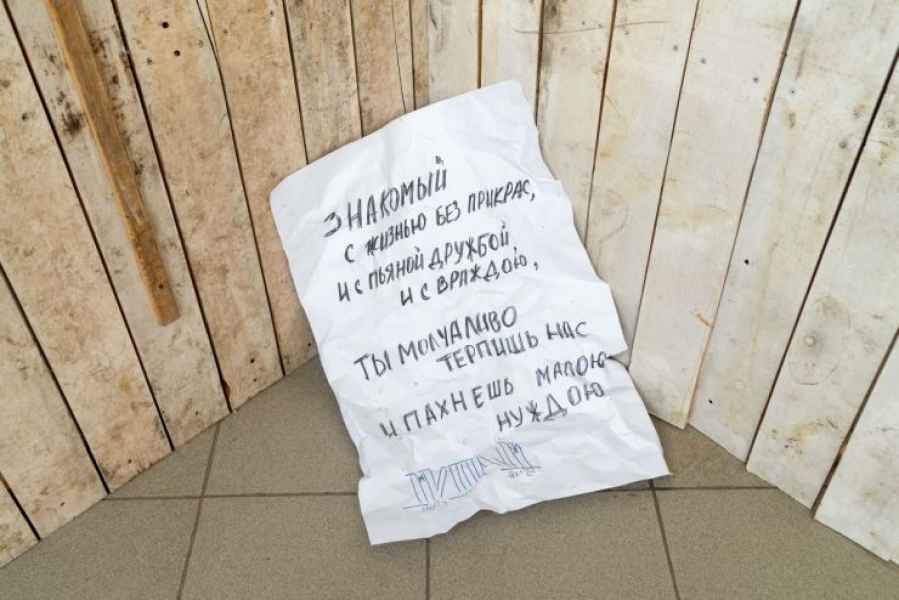 ЗНАКОМЫЙ
С ЖИЗНЬЮ БЕЗ ПРИКРАС,
И С ПЬЯНОЙ ДРУЖБОЙ,
И С ВРАЖДОЮ,
ТЫ МОЛЧАЛИВО
ТЕРПИШЬ НАС
И ПАХНЕШЬ МАЛОЮ
НУЖДОЮ